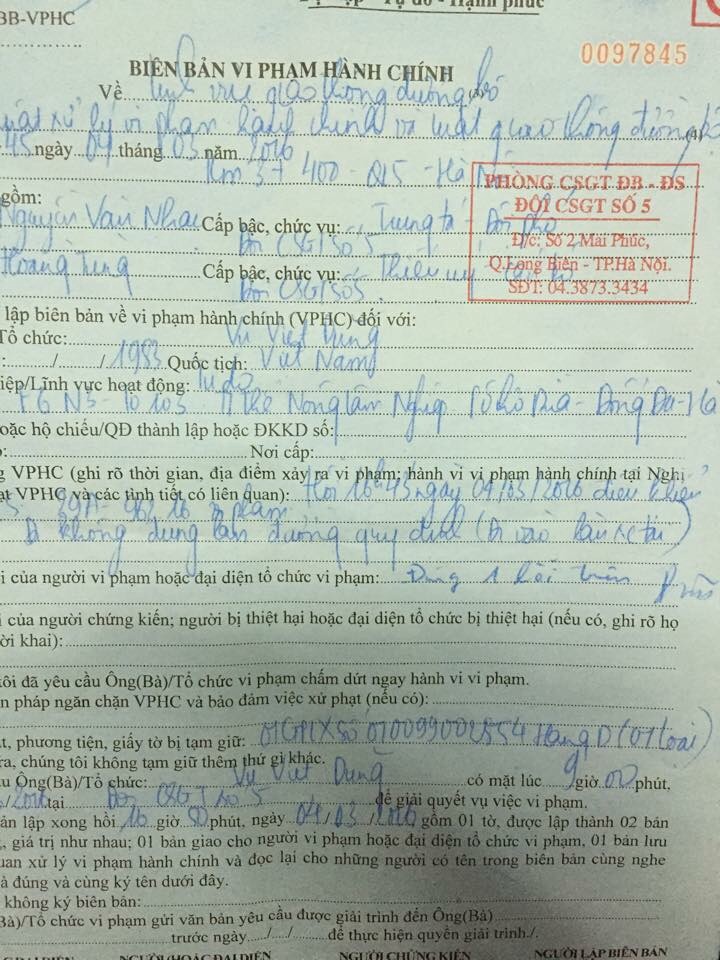 Tự do - Hạnh phúc
BB-VPHC
0097845
BIÊN BẢN VI PHẠM HÀNH CHÍNH
Về lĩnh vực giao thông đường bộ
xử lý vi phạm hành chính và luật giao thông đường bộ
45 ngày 04 tháng 03 năm 2016
Km 3 + 400 - QL5 - Hà Nội
PHÒNG CSGT ĐB - ĐS
ĐỘI CSGT SỐ 5
Đ/c: Số 2 Mai Phúc,
Q.Long Biên - TP.Hà Nội.
SĐT: 04.3873.3434
gồm:
Nguyễn Văn Cấp bậc, chức vụ: Trung tá - Đội phó
Đội CSGT Số 5
Hoàng Tùng Cấp bậc, chức vụ: Thiếu úy
Đội CSGT Số 5
lập biên bản về vi phạm hành chính (VPHC) đối với:
Tổ chức: Vũ Việt Dũng
: / / 1983 Quốc tịch: Việt Nam
iệp/Lĩnh vực hoạt động: Tự do
Nông Lâm Nghiệp - Đống Đa - Hà
oặc hộ chiếu/QĐ thành lập hoặc ĐKKD số:
Nơi cấp:
g VPHC (ghi rõ thời gian, địa điểm xảy ra vi phạm; hành vi vi phạm hành chính tại Nghị
ạt VPHC và các tình tiết có liên quan): Hồi 16h45 ngày 04/03/2016 điều khiển
vi phạm
Đi không đúng làn đường quy định (Đi vào làn xe tải)
i của người vi phạm hoặc đại diện tổ chức vi phạm: Đúng lỗi trên
i của người chứng kiến; người bị thiệt hại hoặc đại diện tổ chức bị thiệt hại (nếu có, ghi rõ họ
ời khai):
tôi đã yêu cầu Ông(Bà)/Tổ chức vi phạm chấm dứt ngay hành vi vi phạm.
n pháp ngăn chặn VPHC và bảo đảm việc xử phạt (nếu có):
t, phương tiện, giấy tờ bị tạm giữ: 01 GPLX số Hạng D (01 loại)
ra, chúng tôi không tạm giữ thêm thứ gì khác.
ầu Ông(Bà)/Tổ chức: Vũ Việt Dũng có mặt lúc 9 giờ 00 phút,
/2016 tại Đội CSGT Số 5 để giải quyết vụ việc vi phạm.
ản lập xong hồi 16 giờ 50 phút, ngày 04/03/2016 gồm 01 tờ, được lập thành 02 bản
, giá trị như nhau; 01 bản giao cho người vi phạm hoặc đại diện tổ chức vi phạm, 01 bản lưu
uan xử lý vi phạm hành chính và đọc lại cho những người có tên trong biên bản cùng nghe
à đúng và cùng ký tên dưới đây.
không ký biên bản:
Bà)/Tổ chức vi phạm gửi văn bản yêu cầu được giải trình đến Ông(Bà)
trước ngày / / để thực hiện quyền giải trình./.
ĐẠI DIỆN NGƯỜI (HOẶC ĐẠI DIỆN NGƯỜI CHỨNG KIẾN NGƯỜI LẬP BIÊN BẢN